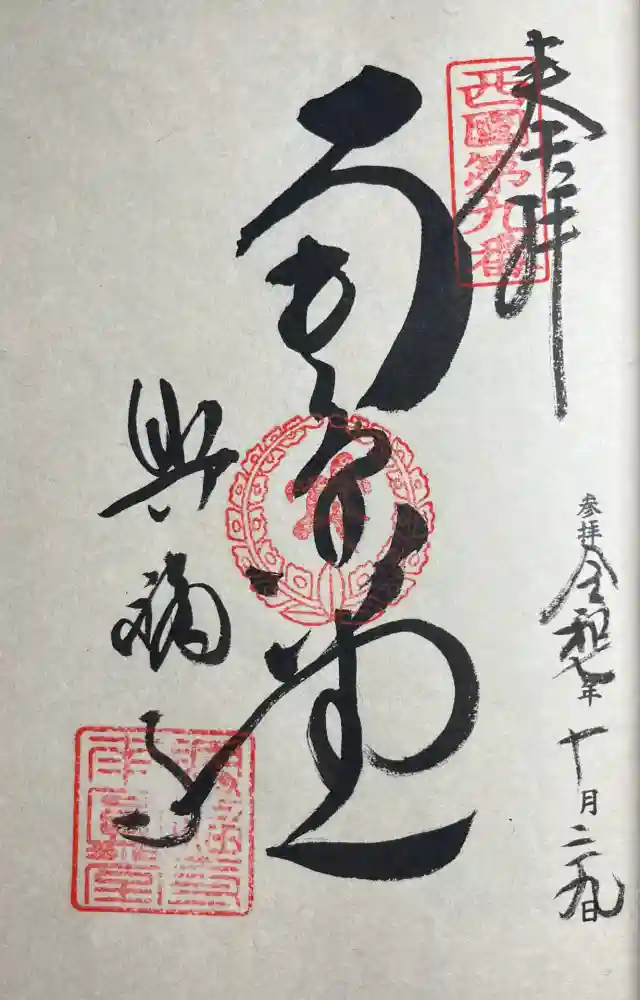 奉拝
西國第九番
参拝 令和七年 十月二十九日
南円堂
興福寺